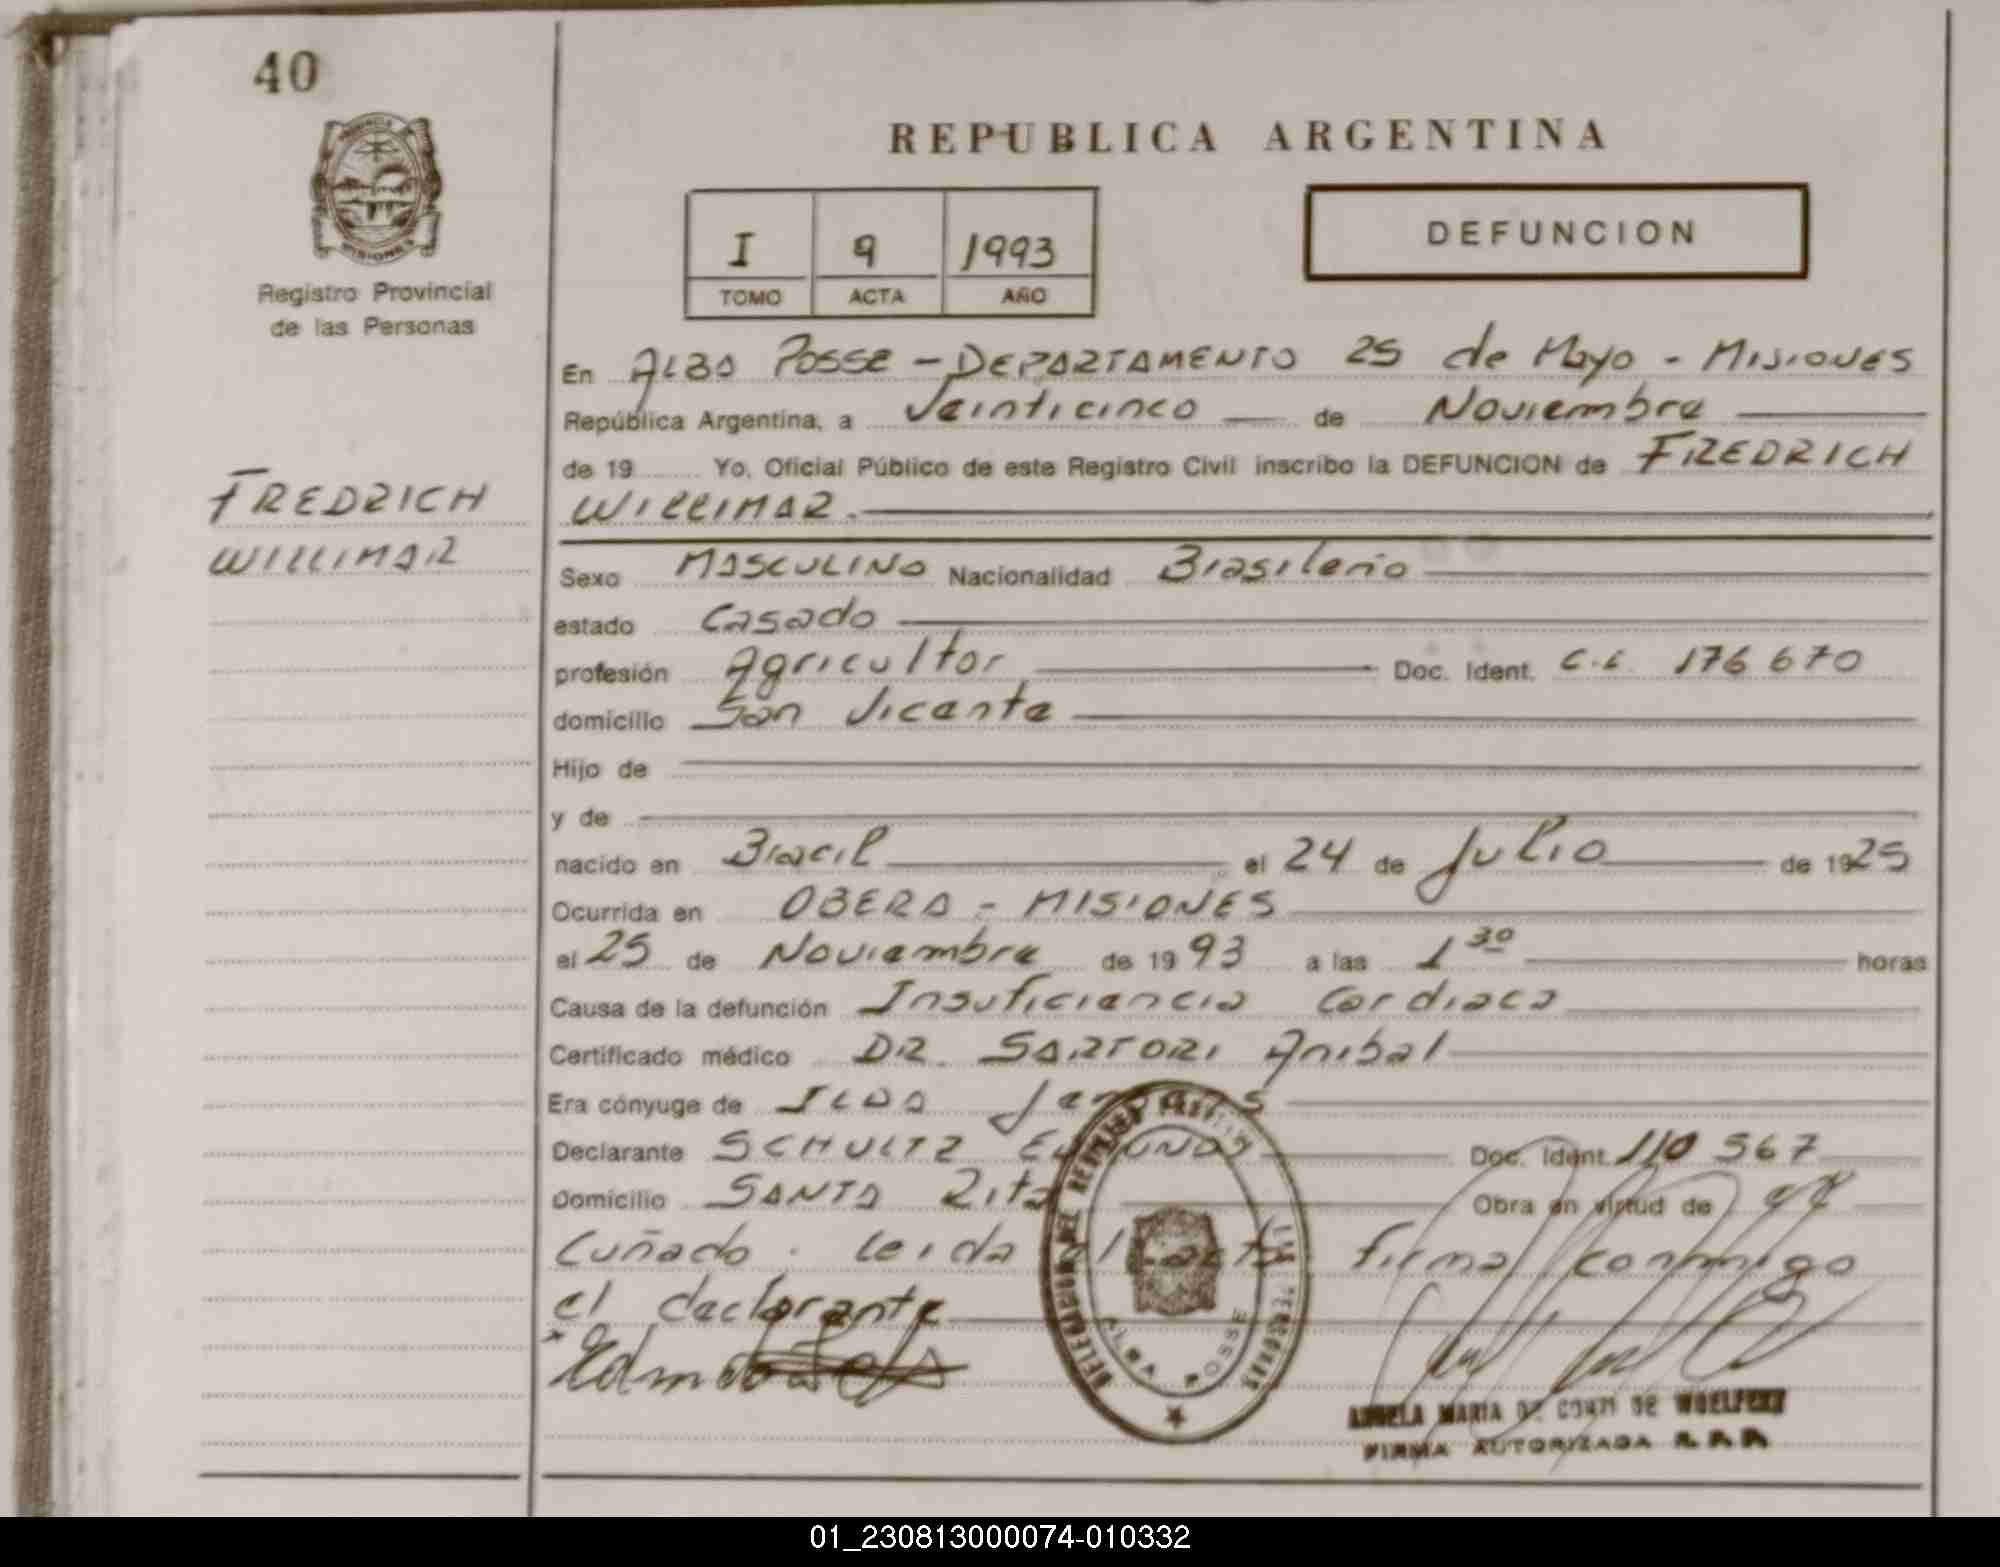 40
REPUBLICA ARGENTINA
PROVINCIA
MISIONES
Registro Provincial
de las Personas
I 9 1993
TOMO ACTA AÑO
DEFUNCION
En ALBA POSSE - DEPARTAMENTO 25 de Mayo - MISIONES
República Argentina, a Veinticinco de Noviembre
de 19 Yo, Oficial Público de este Registro Civil inscribo la DEFUNCION de FREDRICH
WILLIMAR.
FREDRICH
WILLIMAR
Sexo MASCULINO Nacionalidad Brasileño
estado Casado
profesión Agricultor Doc. Ident. C.I. 176 670
domicilio San Vicente
Hijo de
y de
nacido en Bracil el 24 de Julio de 1925
Ocurrida en OBERA - MISIONES
el 25 de Noviembre de 19 93 a las 1 30 horas
Causa de la defunción Insuficiencia Cardiaca
Certificado médico DR. SARTORI Anibal
Era cónyuge de ILDA
Declarante SCHULTZ Doc. Ident. 110 567
Domicilio SANTA Rita Obra en virtud de
Cuñado. leida el acta firma conmigo
el declarante
DELEGACION DEL REGISTRO PROVINCIAL DE LAS PERSONAS
ALBA POSSE
ANGELA MARIA DE CONTI DE
FIRMA AUTORIZADA R. P. P.
01_230813000074-010332